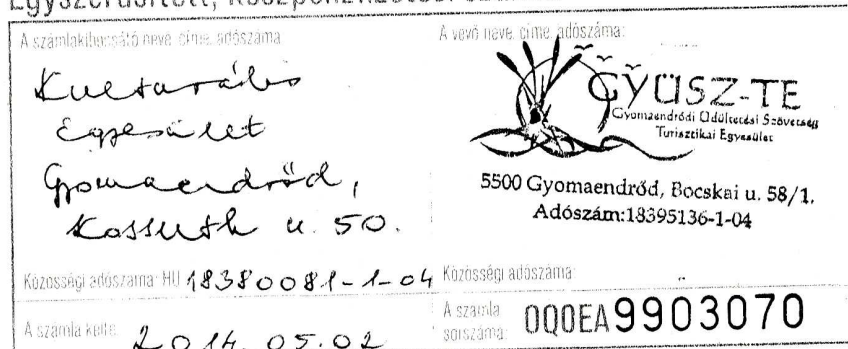 A számlakibocsátó neve, címe, adószáma:
Kulturális
Egyesület
Gyomaendrőd,
Kossuth u. 50.
Közösségi adószáma: HU 18380081-1-04
A számla kelte: 2014. 05. 02
A vevő neve, címe, adószáma:
GYÜSZ-TE
Gyomaendrődi Üdültetési Szövetség
Turisztikai Egyesület
5500 Gyomaendrőd, Bocskai u. 58/1.
Adószám:18395136-1-04
Közösségi adószáma:
A számla
sorszáma:
0Q0EA9903070